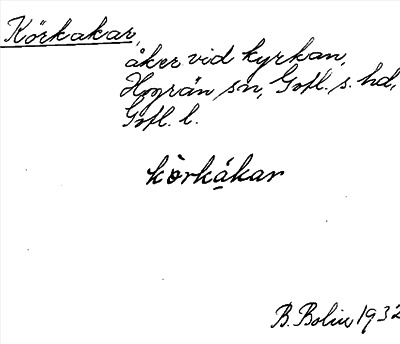 Körkakar,
åker vid kyrkan,
Hogrän sn, Gotl. s. hd,
Gotl. l.
kòrkákar
B. Bolin 1932